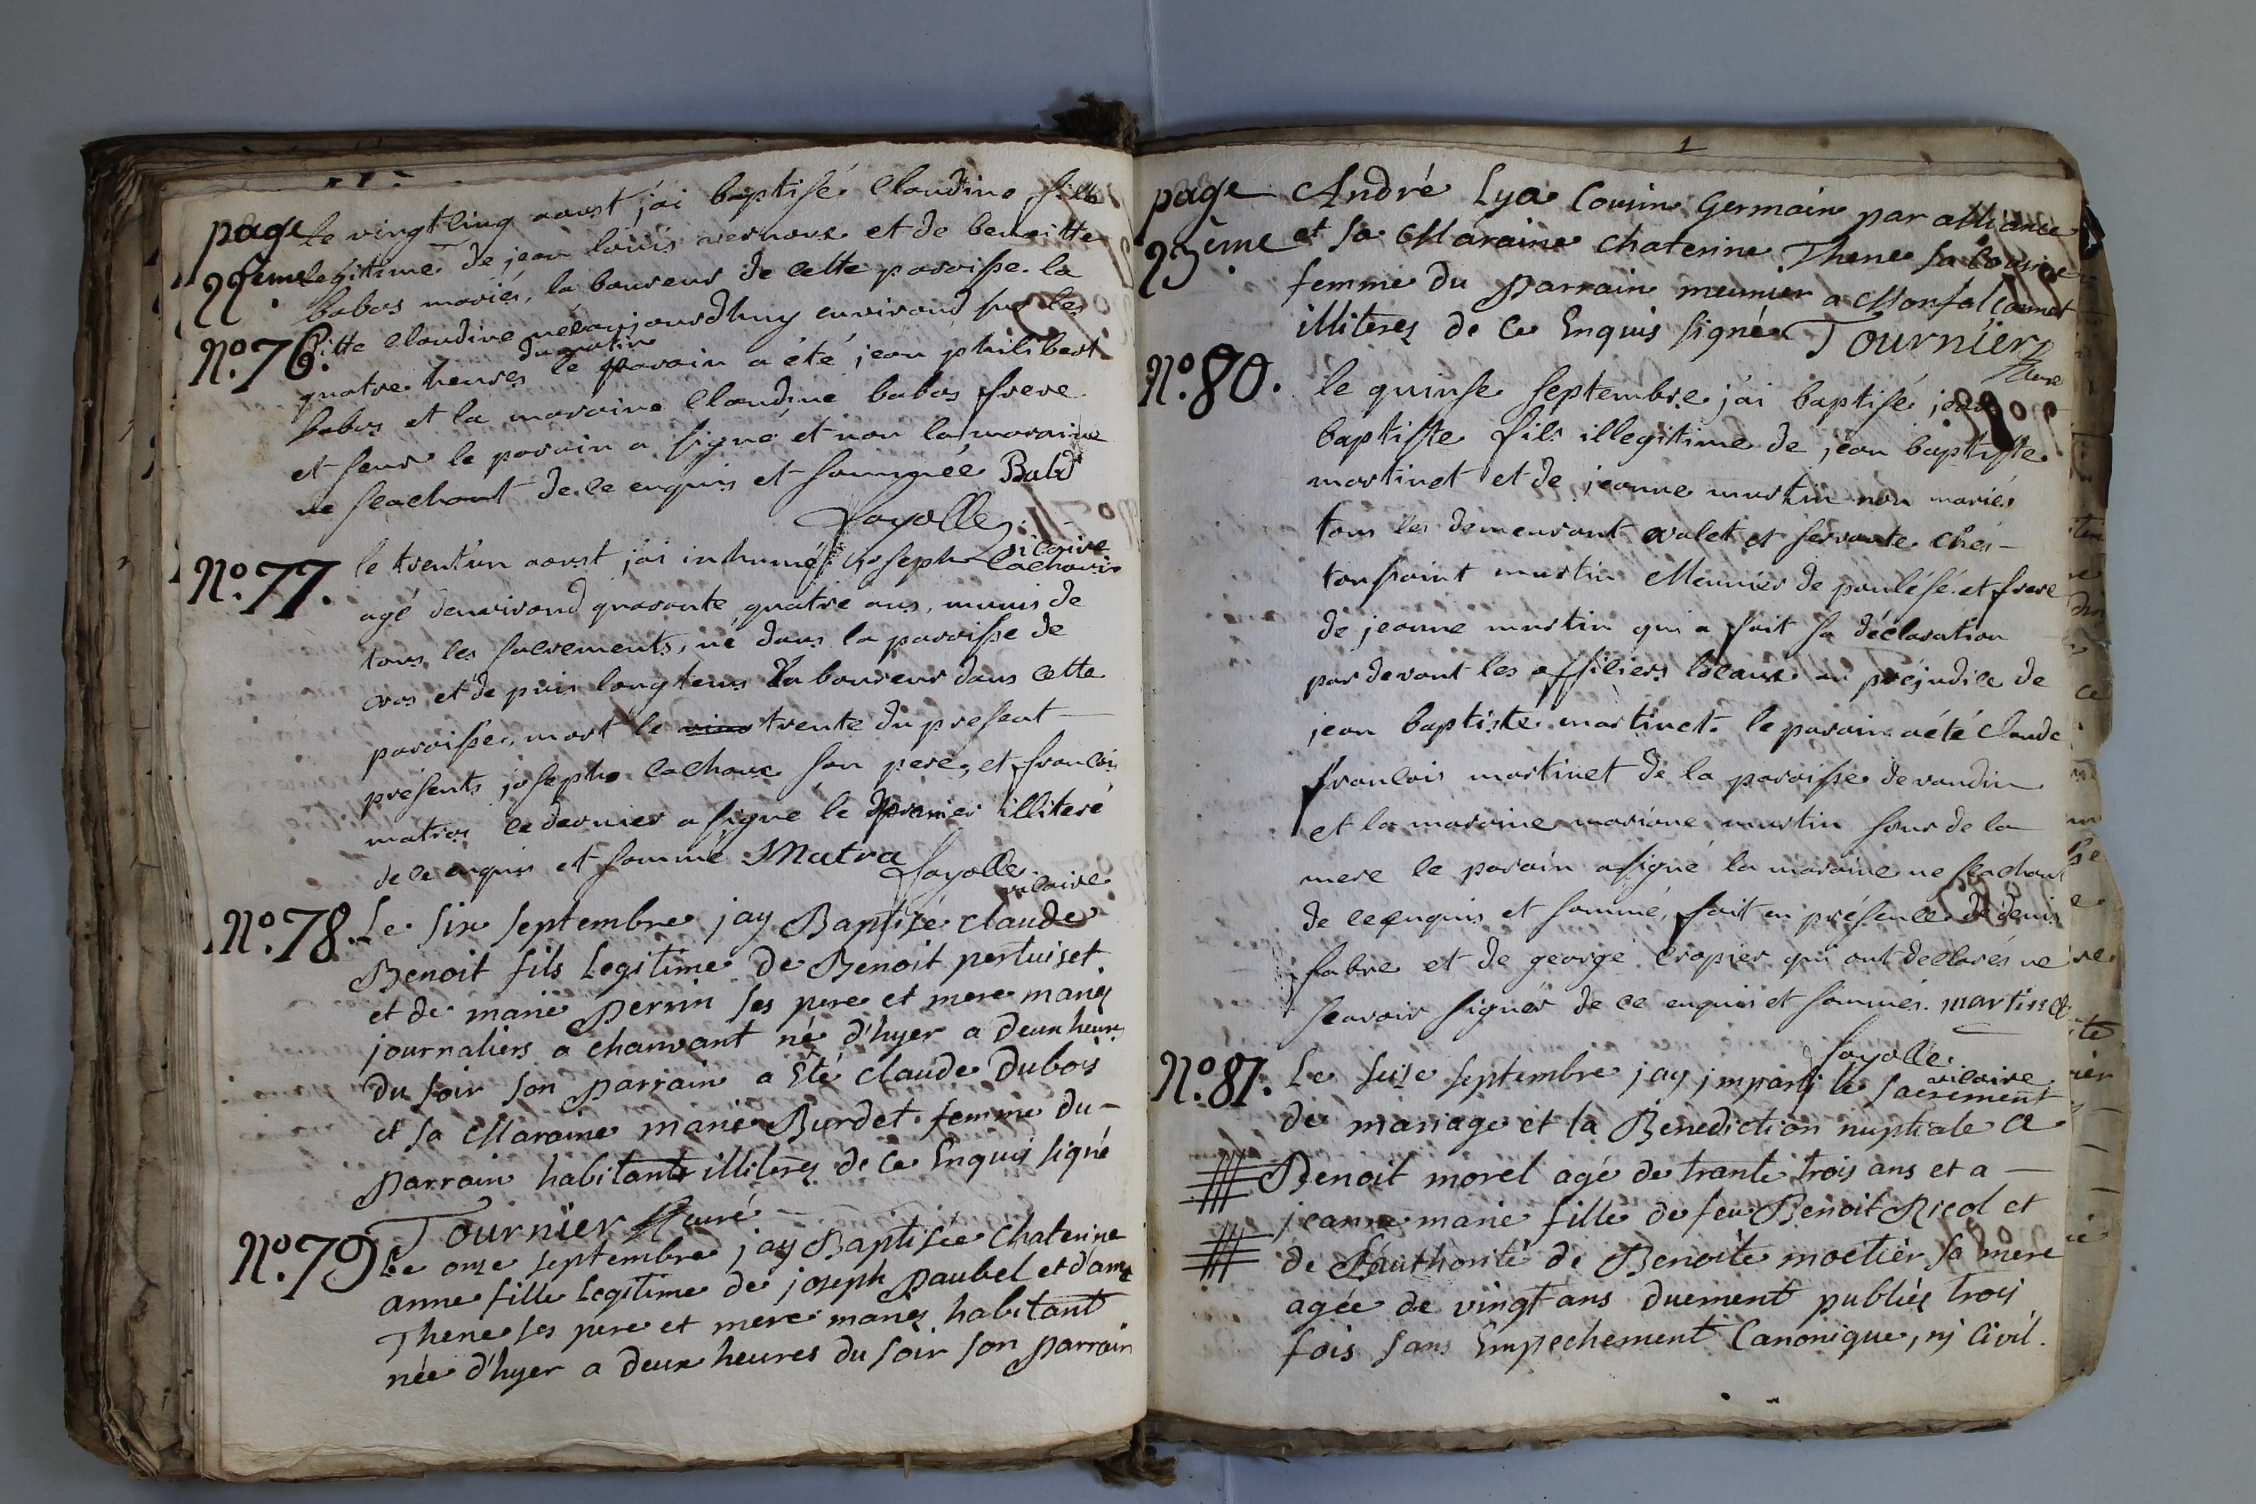 page
22eme
No. 76.
le vingt cinq aoust j'ai baptisé Claudine fille
legitime de jean louis vernoux et de benoitte
babos mariés, laboureur de cette paroisse. la
ditte claudine née aujourdhuy environd sur les
quatre heures du matin le parain a été jean philibert
babos et la maraine Claudine babos frere
et seur le parain a signé et non la maraine
ne scachant de ce enquis et sommée Babd
fayolle vicaire
No. 77.
le trent'un aoust j'ai inhumé joseph Lachoux
agé denvirond quarante quatre ans, munis de
tous les sacrements, né dans la paroisse de
aros et depuis longtems laboureur dans cette
paroisse, mort le trente du present
présents joseph lachoux son pere, et francois
matras ce dernier a signé le premier illiteré
de ce enquis et sommé Matra fayolle
vicaire
No. 78.
Le six septembre jay Baptisé claude
Benoit fils legitime de Benoit pertuiset
et de marie perrin ses pere et mere mariés
journaliers a chanvant né d'hyer a deux heures
du soir son parrain a Eté claude Dubois
et sa Maraine marie Burdet femme du
parrain habitants illiterés de ce Enquis signé
Tournier Curé
No. 79
Le onze septembre jay Baptisée Chaterine
anne fille legitime de joseph paubel et d'anne
Thene ses pere et mere mariés habitant
née d'hyer a deux heures du soir son parrain
1
page
23eme
André Lya Cousin Germain par alliance
et sa Maraine chaterine Thene sa cousine
femme du parrain meunier a Monfalconnet
illiterés de ce Enquis signé Tournier
Curé
No. 80.
le quinse septembre j'ai baptisé jean
baptiste fils illegitime de jean baptiste
martinet et de jeanne martin non mariés
tous les demeurant valet et servante chés
toussaint martin Meunier de poulésé et frere
de jeanne martin qui a fait sa déclaration
par devant les officiers locaux au préjudice de
jean baptiste martinet. le parain a été claude
francois martinet de la paroisse de vaudin
et la maraine mariane martin seur de la
mere le parain a signé la maraine ne scachant
de ce enquis et sommé, fait en présence de denis
fabre et de george Cropier qui ont declarés ne
scavoir signer de ce enquis et sommés. martinet
fayolle
vicaire
No. 81.
Le seize septembre jay imparti le sacrement
de mariage et la Benediction nuptiale a
Benoit morel agé de trante trois ans et a
jeanne marie fille de feu Benoit Ricol et
de Lauthorité de Benoite moetier sa mere
agée de vingt ans duement publiés trois
fois sans Empechement Canonique, nj Civil.